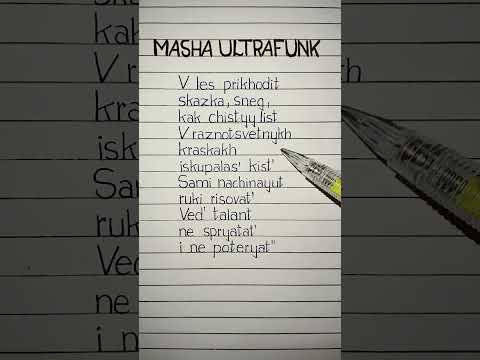 MASHA ULTRAFUNK
V les prikhodit
skazka, sneg,
kak chistyy list
V raznotsvetnykh
kraskakh
iskupalas' kist'
Sami nachinayut
ruki risovat'
Ved' talant
ne spryatat'
i ne poteryat"